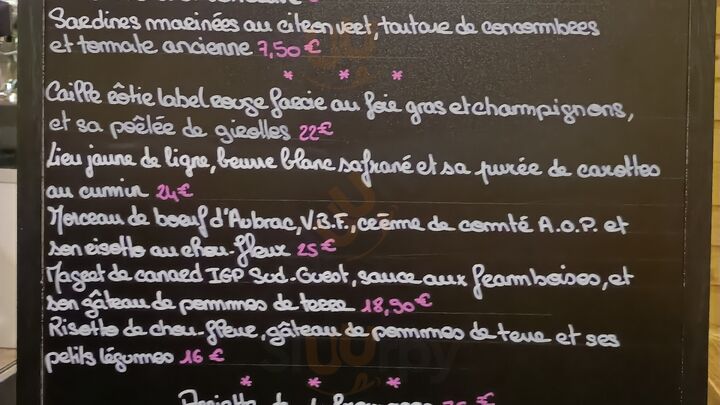 Sardines marinées au citron vert, tartare de concombres
et tomate ancienne 7,50 €
* * *
Caille rôtie label rouge farcie au foie gras et champignons,
et sa poêlée de girolles 22€
Lieu jaune de ligne, beurre blanc safrané et sa purée de carottes
au cumin 24€
Morceau de boeuf d'Aubrac, V.B.F., crème de comté A.O.P. et
son risotto au chou-fleur 25€
Magret de canard IGP Sud-Ouest, sauce aux framboises, et
son gâteau de pommes de terre 18,90€
Risotto de chou-fleur, gâteau de pommes de terre et ses
petits légumes 16 €
* * *